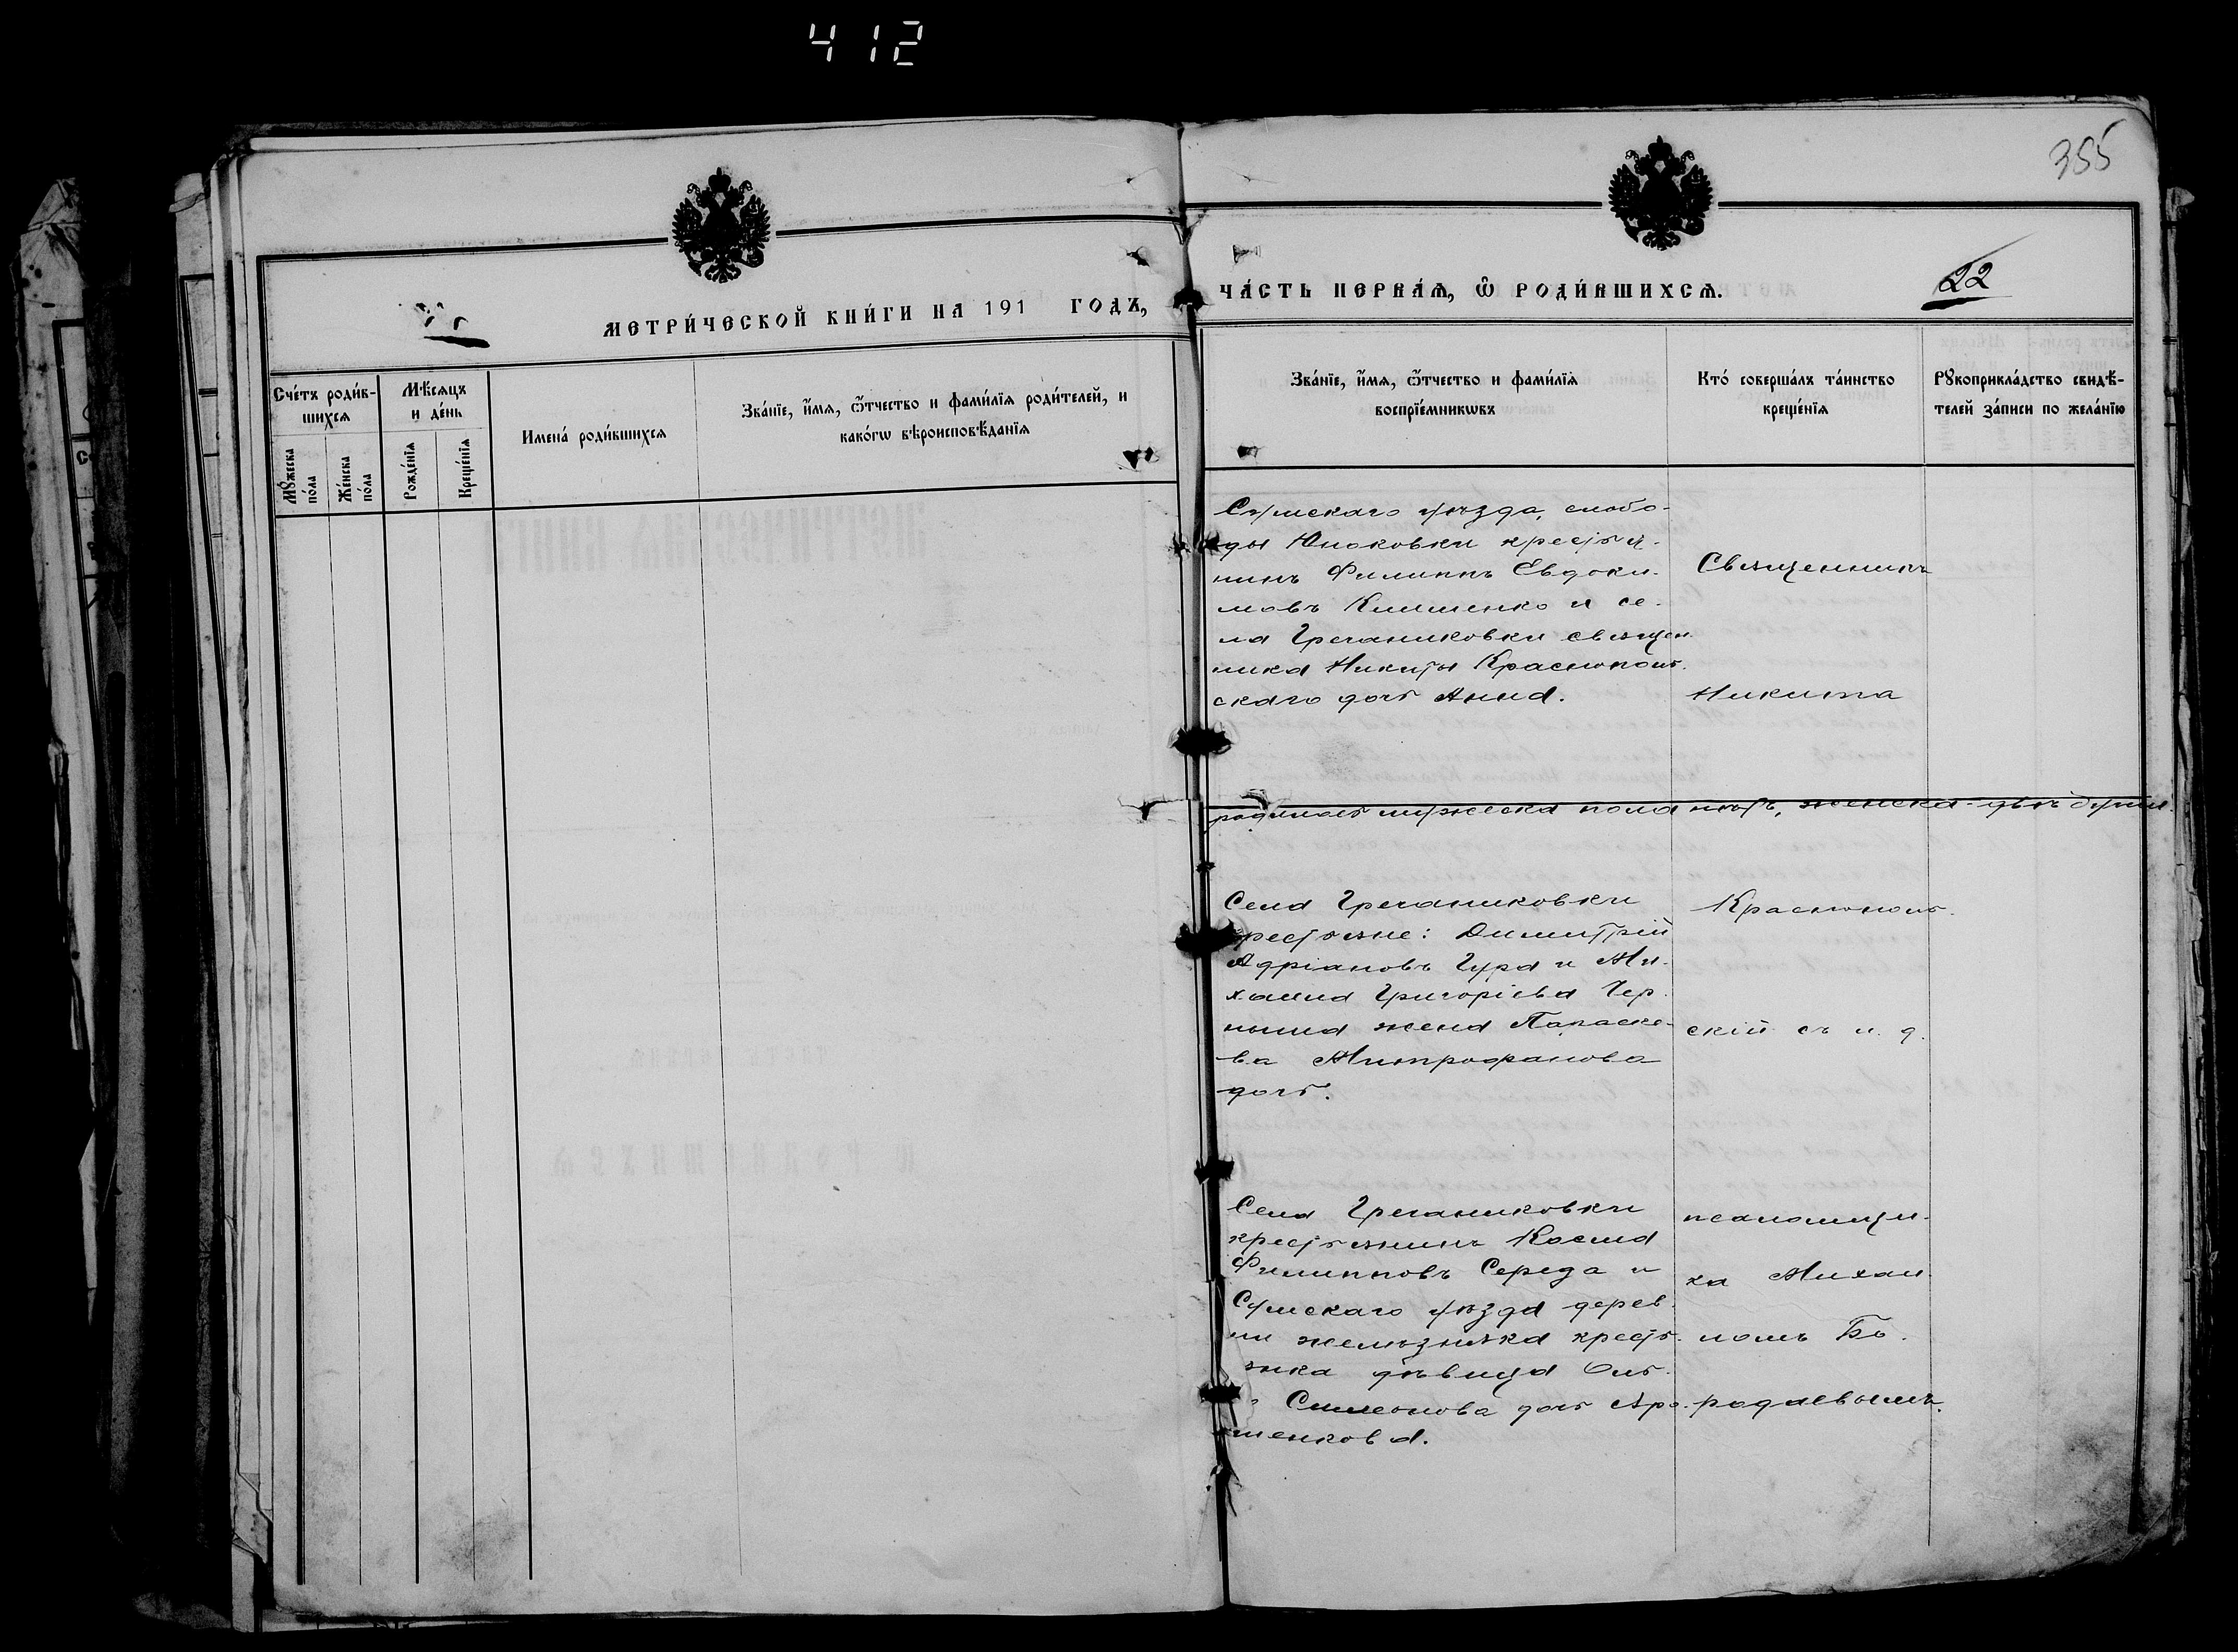 412
355
МЕТРИ́ЧЕСКОЙ КНИ́ГИ НА 191 ГОДЪ,
Сче́тъ роди́в-
шихся
Мѣ́сяцъ
и де́нь
Мꙋ́жеска
по́ла
Же́нска
по́ла
Рожде́нїѧ
Креще́нїѧ
Имена́ роди́вшихсѧ
Зва́нїе, и҆́мѧ, ѻ҆́тчество и фами́лїѧ роди́телей, и
како́гѡ вѣроисповѣ́данїѧ
ЧА́СТЬ ПЕРВА́Ѧ, Ѡ҆ РОДИ́ВШИХСѦ.
22
Зва́нїе, и҆́мѧ, ѻ҆́тчество и фами́лїѧ
воспрїе́мникѡвъ
Кто́ соверша́лъ та́инство
креще́нїѧ
Рꙋкоприкла́дство свидѣ́-
телей за́писи по жела́нїю
Сумскаго уѣзда, слобо-
ды Юнаковки крестья-
нинъ Филиппъ Евдоки-
мовъ Клименко и се-
ла Гречаниковки священ-
ника Никиты Краснополь-
скаго дочь Анна.
Священникъ
Никита
родилось мужеска пола нѣтъ, женска - двѣ души.
Села Гречаниковки
крестьяне: Димитрій
Адріановъ Гура и Ми-
хаила Григоріева Чер-
ныша жена Параске-
ва Митрофанова
дочь.
Краснополь-
скій съ и. д.
Села Гречаниковки
крестьянинъ Косма
Филипповъ Середа и
Сумскаго уѣзда дерев-
ни Желѣзняка кресть-
янка дѣвица Оль-
Симеонова дочь Яро-
шенкова.
псаломщи-
ка Михаи-
ломъ Бо-
родаевымъ.